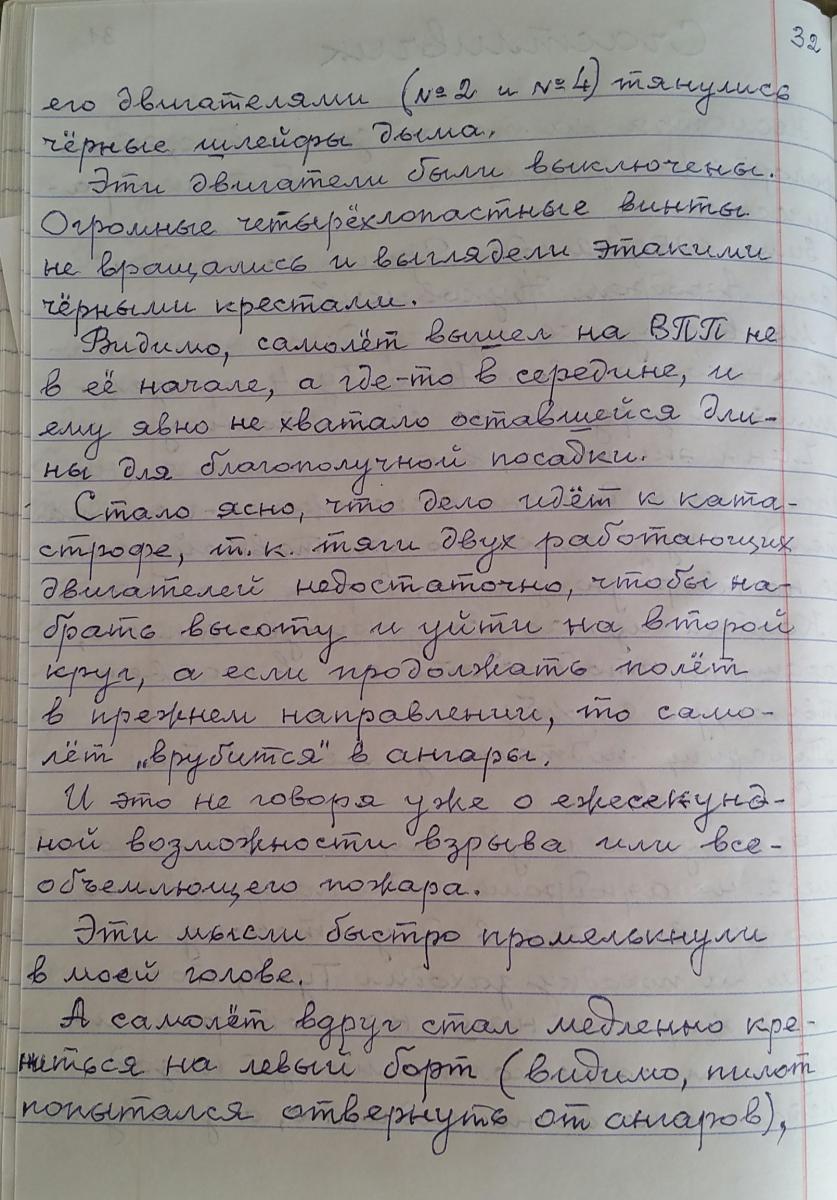 32
его двигателями (№2 и №4) тянулись
чёрные шлейфы дыма.
Эти двигатели были выключены.
Огромные четырёхлопастные винты
не вращались и выглядели этакими
чёрными крестами.
Видимо, самолёт вышел на ВПП не
в её начале, а где-то в середине, и
ему явно не хватало оставшейся дли-
ны для благополучной посадки.
Стало ясно, что дело идёт к ката-
строфе, т.к. тяги двух работающих
двигателей недостаточно, чтобы на-
брать высоту и уйти на второй
круг, а если продолжать полёт
в прежнем направлении, то само-
лёт „врубится" в ангары.
И это не говоря уже о ежесекунд-
ной возможности взрыва или все-
объемлющего пожара.
Эти мысли быстро промелькнули
в моей голове.
А самолёт вдруг стал медленно кре-
ниться на левый борт (видимо, пилот
попытался отвернуть от ангаров),